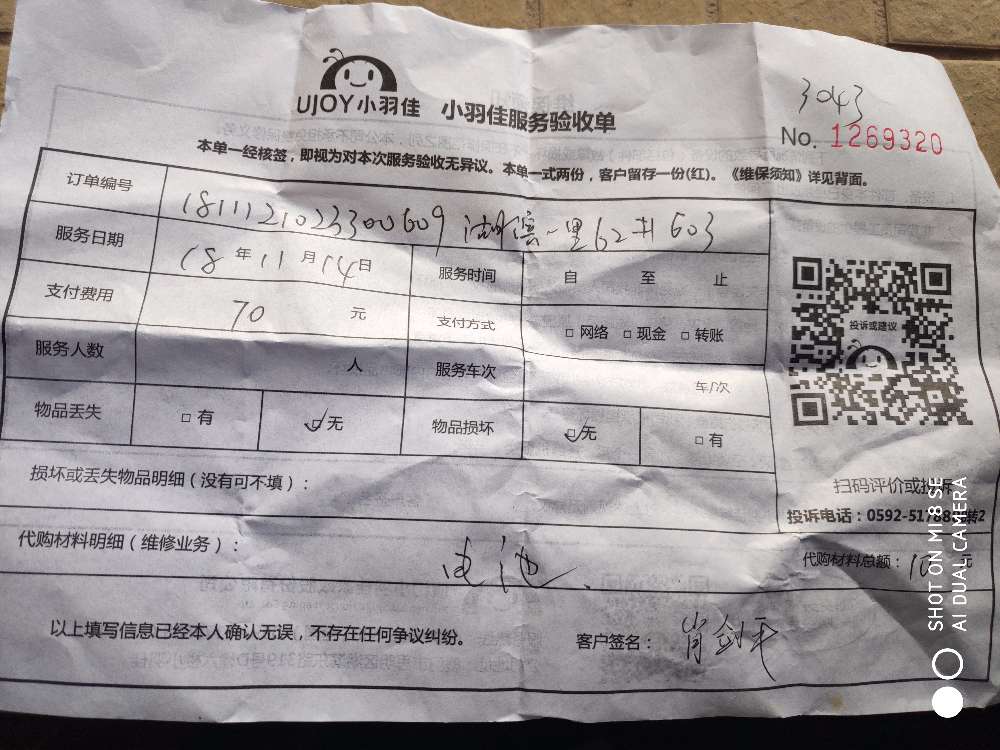 UJOY小羽佳 小羽佳服务验收单
3043
No. 1269320
本单一经核签，即视为对本次服务验收无异议。本单一式两份，客户留存一份(红)。《维保须知》详见背面。
订单编号 湖滨一里62#603
服务日期 18 年 11 月 14 日 服务时间 自 至 止
支付费用 70 元 支付方式 □ 网络 □ 现金 □ 转账
服务人数 人 服务车次 车/次
物品丢失 □ 有 ☑ 无 物品损坏 ☑ 无 □ 有
投诉或建议
扫码评价或投诉
投诉电话：0592-5178 转2
损坏或丢失物品明细（没有可不填）：
代购材料明细（维修业务）： 电池 代购材料总额： 元
以上填写信息已经本人确认无误，不存在任何争议纠纷。 客户签名： 肖剑平
SHOT ON MI 8 SE
AI DUAL CAMERA